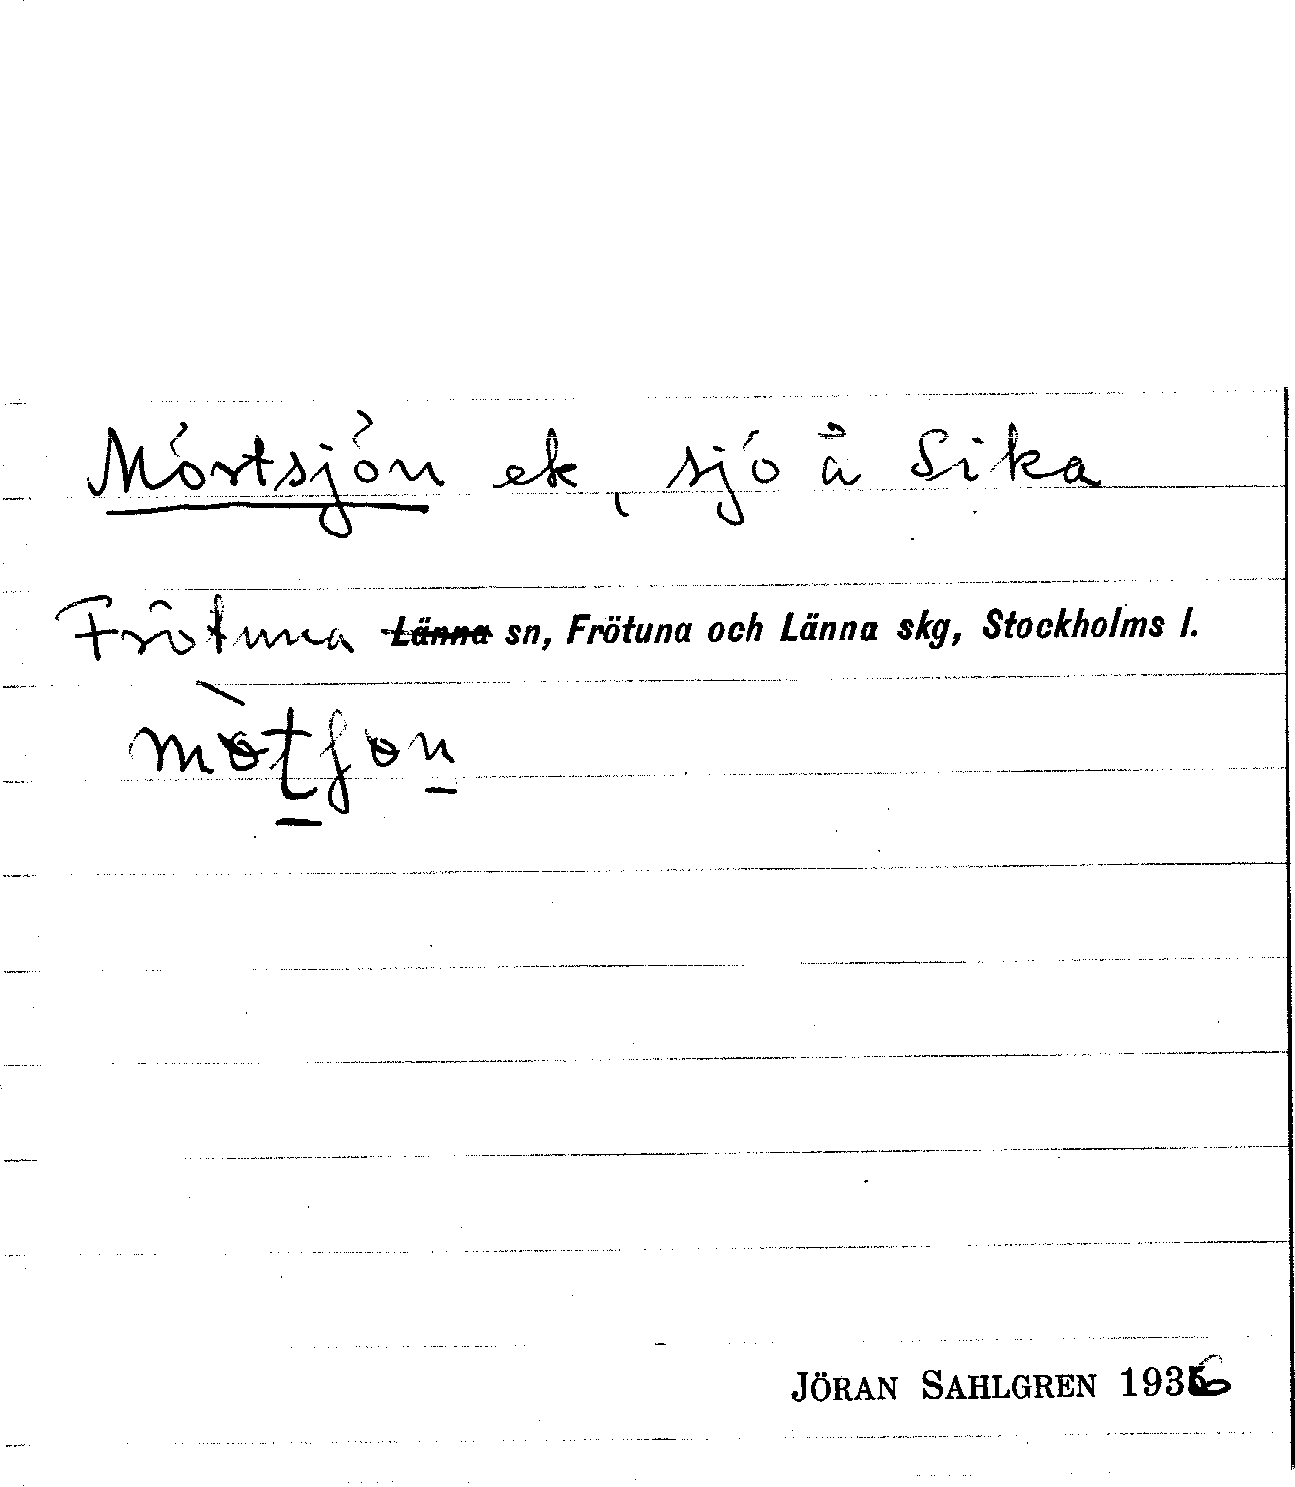 Mörtsjön ek, sjö å Sika
Frötuna Länna sn, Frötuna och Länna skg, Stockholms l.
JÖRAN SAHLGREN 1936